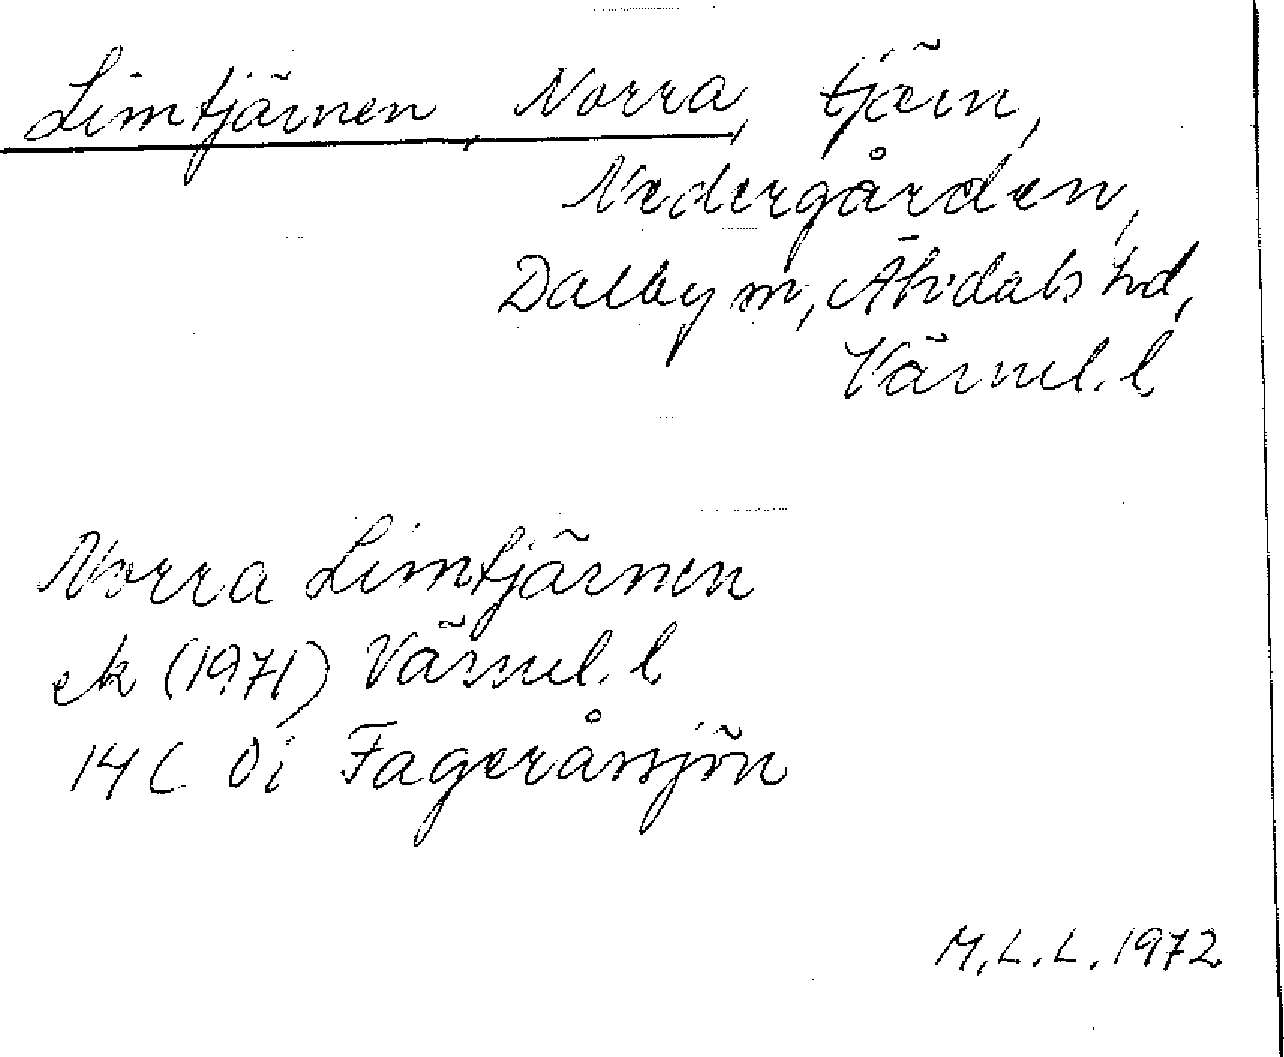 Limtjärnen, Norra, tjärn,
Nedergården,
Dalby sn, Älvdals hd,
Värml. l.
Norra Limtjärnen
ek (1971) Värml. l.
14C 0i Fageråssjön
M.L.L. 1972